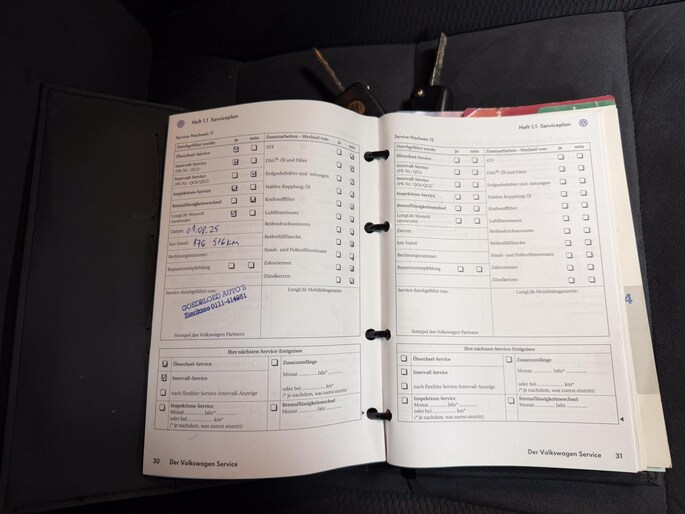 Heft 1.1 Serviceplan
Service-Nachweis 11
Durchgeführt wurde: ja nein
Ölwechsel-Service
Intervall-Service
(PR-Nr.: QG1)
Intervall-Service
(PR-Nr.: QG0/QG2)
Inspektions-Service
Bremsflüssigkeitswechsel
LongLife Motoröl
verwendet
Datum: 01.08.25
km-Stand: 176 516 km
Rechnungsnummer:
Reparaturempfehlung
Zusatzarbeiten - Wechsel von: ja nein
ATF
DSG®: Öl und Filter
Erdgasbehälter und -leitungen
Haldex Kupplung: Öl
Kraftstofffilter
Luftfiltereinsatz
Reifendrucksensoren
Reifenfüllflasche
Staub- und Pollenfiltereinsatz
Zahnriemen
Zündkerzen
Service durchgeführt von:
LongLife Mobilitätsgarantie:
GOEDBLOED AUTO'S
Stempel des Volkswagen Partners
Ihre nächsten Service-Ereignisse
Ölwechsel-Service
Intervall-Service
nach flexibler Service-Intervall-Anzeige
Inspektions-Service
Monat .......... Jahr*
oder bei .......... km*
(* je nachdem, was zuerst eintritt)
Zusatzumfänge
Monat .......... Jahr*
oder bei .......... km*
(* je nachdem, was zuerst eintritt)
Bremsflüssigkeitswechsel
Monat .......... Jahr
30 Der Volkswagen Service
2
Heft 1.1 Serviceplan
Service-Nachweis 12
Durchgeführt wurde: ja nein
Ölwechsel-Service
Intervall-Service
(PR-Nr.: QG1)
Intervall-Service
(PR-Nr.: QG0/QG2)
Inspektions-Service
Bremsflüssigkeitswechsel
LongLife Motoröl
verwendet
Datum:
km-Stand:
Rechnungsnummer:
Reparaturempfehlung
Zusatzarbeiten - Wechsel von: ja nein
ATF
DSG®: Öl und Filter
Erdgasbehälter und -leitungen
Haldex Kupplung: Öl
Kraftstofffilter
Luftfiltereinsatz
Reifendrucksensoren
Reifenfüllflasche
Staub- und Pollenfiltereinsatz
Zahnriemen
Zündkerzen
Service durchgeführt von:
LongLife Mobilitätsgarantie:
Stempel des Volkswagen Partners
Ihre nächsten Service-Ereignisse
Ölwechsel-Service
Intervall-Service
nach flexibler Service-Intervall-Anzeige
Inspektions-Service
Monat .......... Jahr*
oder bei .......... km*
(* je nachdem, was zuerst eintritt)
Zusatzumfänge
Monat .......... Jahr*
oder bei .......... km*
(* je nachdem, was zuerst eintritt)
Bremsflüssigkeitswechsel
Monat .......... Jahr
Der Volkswagen Service 31
4